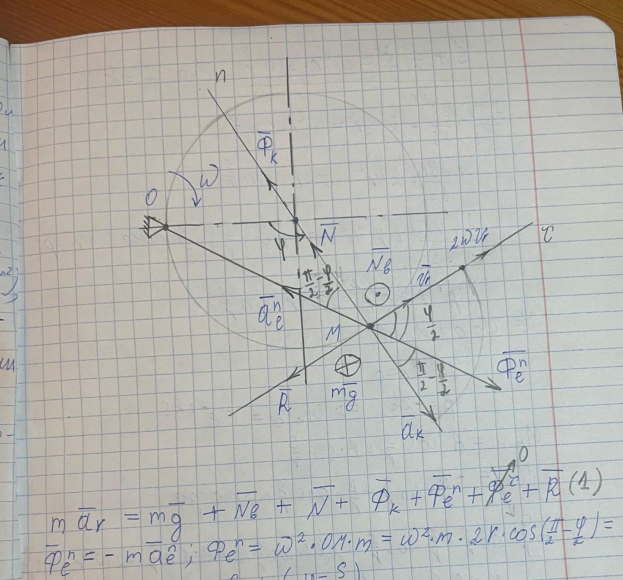 n
Φ̅k
O
ω
φ
N̅
N̅в
2ωVr
τ
V̅r
π/2 - φ/2
a̅eⁿ
M
φ/2
π/2 - φ/2
Φ̅eⁿ
R̅
mg̅
a̅k
0
m a̅r = mg̅ + N̅в + N̅ + Φ̅k + Φ̅eⁿ + Φ̅eᶜ + R̅ (1)
Φ̅eⁿ = - m a̅eⁿ ; Φeⁿ = ω²·OM·m = ω²·m·2r·cos(π/2 - φ/2) =